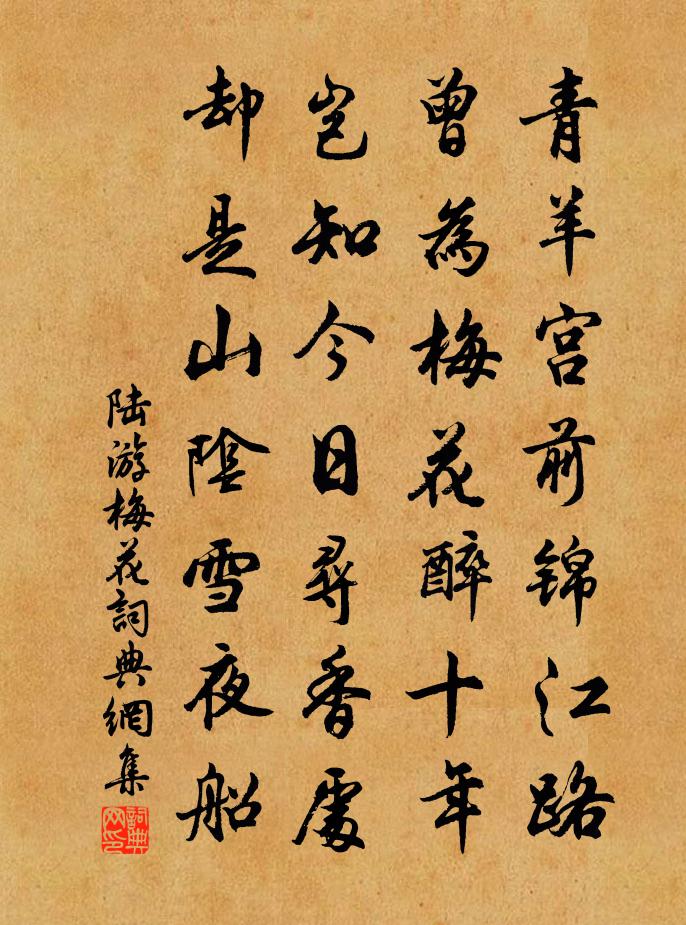 青羊宫前锦江路
曾為梅花醉十年
岂知今日尋香處
却是山陰雪夜船
陆游梅花詞典網集
詞典网印